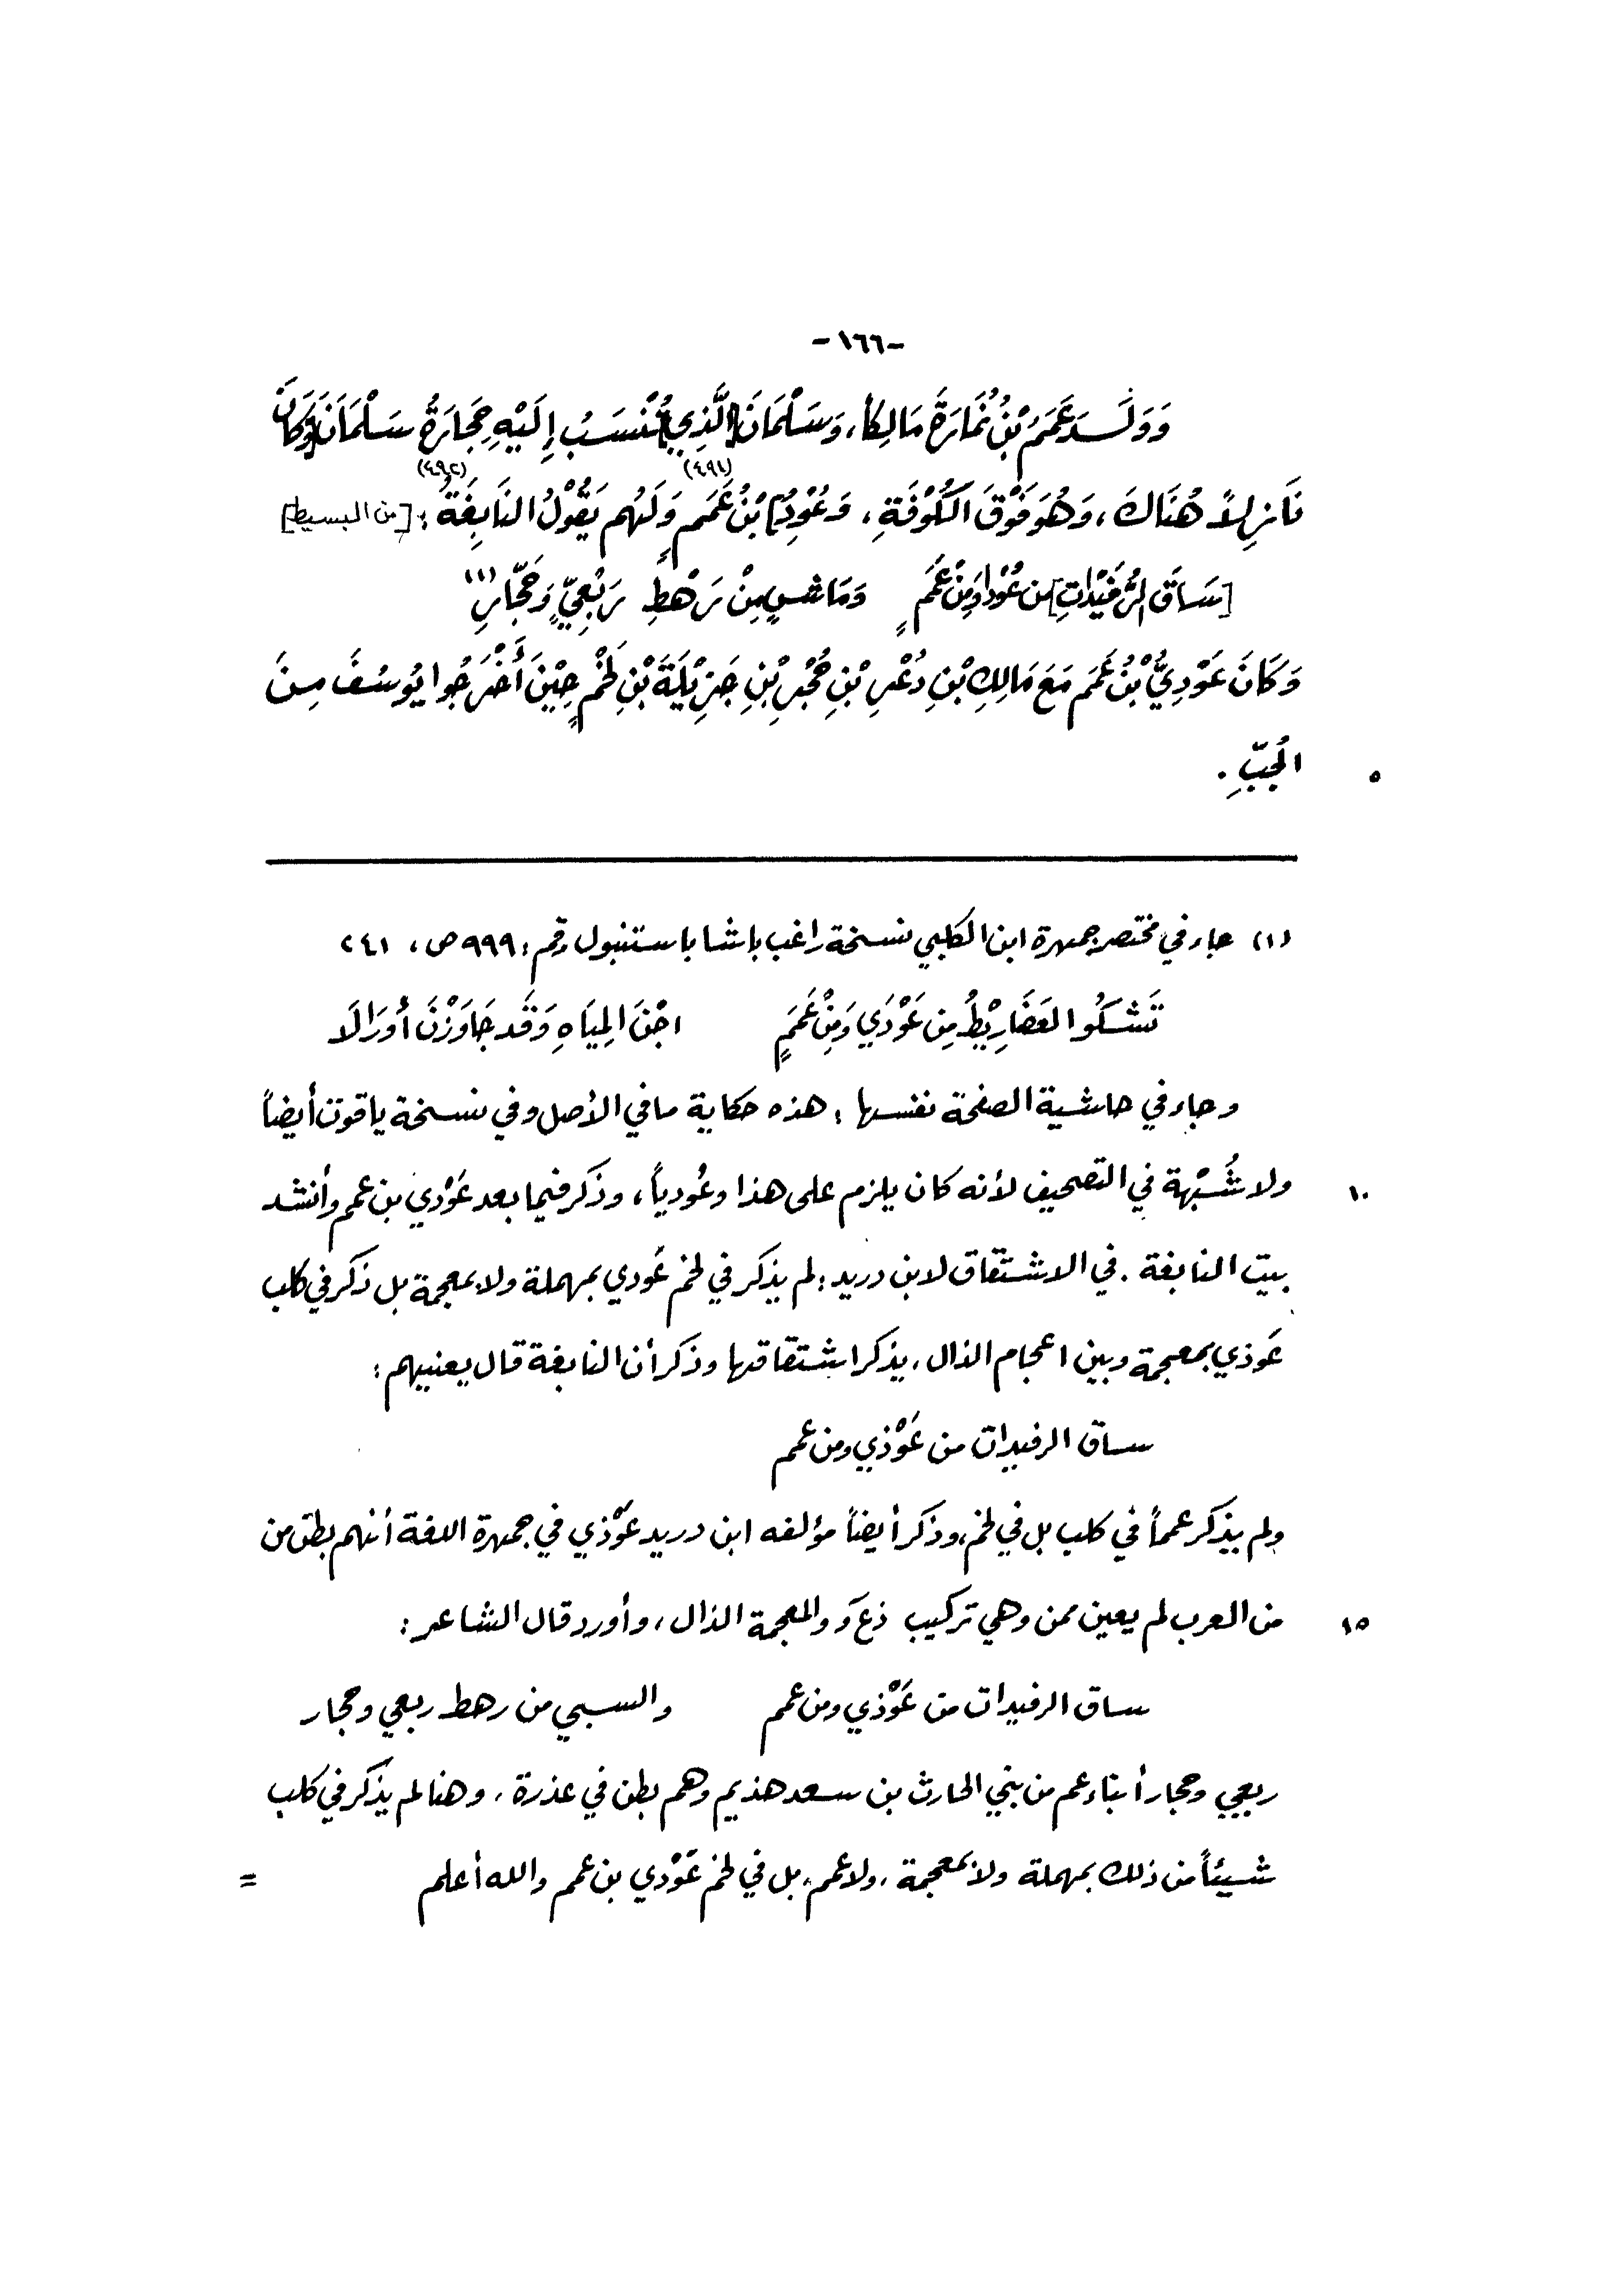 -١٦٦-
وَوَلَدَ عَمَمُ بْنُ نُمَارَةَ مَالِكاً، وَسَلْمَانَ [الَّذِي] تُنْسَبُ إِلَيْهِ حِجَارَةُ سَلْمَانَ [وَكَانَ
نَازِلاً هُنَاكَ، وَهُوَ فَوْقَ الكُوْفَةِ، وَعُوْد] بْنُ عَمَمٍ (٤٩١) وَلَهُم يَقُوْلُ النَابِغَةُ (٤٩٢): [من البسيط]
[سَاقَ الرُّفَيْدَاتِ] من عُوْدا وَمِنْ عَمَمٍ وَمَاشٍ مِنْ رَهْطِ رَبْعِيٍّ وَحَجَّارِ (١)
وَكَانَ عَوْدِيُّ بْنُ عَمَمٍ مَعَ مَالِكِ بْنِ دُعْرِ بْنِ حُجْرِ بْنِ جَزِيْلَةَ بْنِ لَخْمٍ حِيْنَ أَخْرَجُوا يُوسُفَ مِنَ
٥ الجُبِّ.
(١) جاء في مختصر جمهرة ابن الكلبي نسخة راغب باشا باستنبول رقم: ٩٩٩ ص، ٢٤١
تَشكُوا العَضَارِيْطُ مِن عَوْدَي وَمِنْ عَمَمٍ اجْنَ المِيَاهِ وَقَد جَاوَزْنَ أُورَالَا
وجاء في حاشية الصفحة نفسها: هذه حكاية ما في الأصل وفي نسخة ياقوت أيضاً
١٠ ولا شُبْهة في التصحيف لأنه كان يلزم على هذا وعُودياً، وذكر فيما بعد عَوْدي بن عمم وأنشد
بيت النابغة. في الاشتقاق لابن دريد: لم يذكر في لخم عَودي بمهملة ولا بمعجمة بل ذكر في كلب
عَوذي بمعجمة وبين اعجام الذال، يذكر اشتقاقها وذكر أن النابغة قال يعنيهم:
ساق الرفيدات من عَوْذي ومن عمم
ولم يذكر عمماً في كلب بل في لخم، وذكر أيضاً مؤلفه ابن دريد عَوْذي في جمهرة اللغة أنهم بطن من
١٥ من العرب لم يعين ممن وهي تركيب ذعَ وَ والمعجمة الذال، وأورد قال الشاعر:
ساق الرفيدات من عَوْذي ومن عمم والسبي من رهط ربعي وحجار
ربعي وحجار أبناء عم من بني الحارث بن سعد هذيم وهم بطن في عذرة، وهنا لم يذكر في كلب
شيئاً من ذلك بمهملة ولا بمعجمة، ولا عمم، بل في لخم عَوْدي بن عمم والله أعلم =